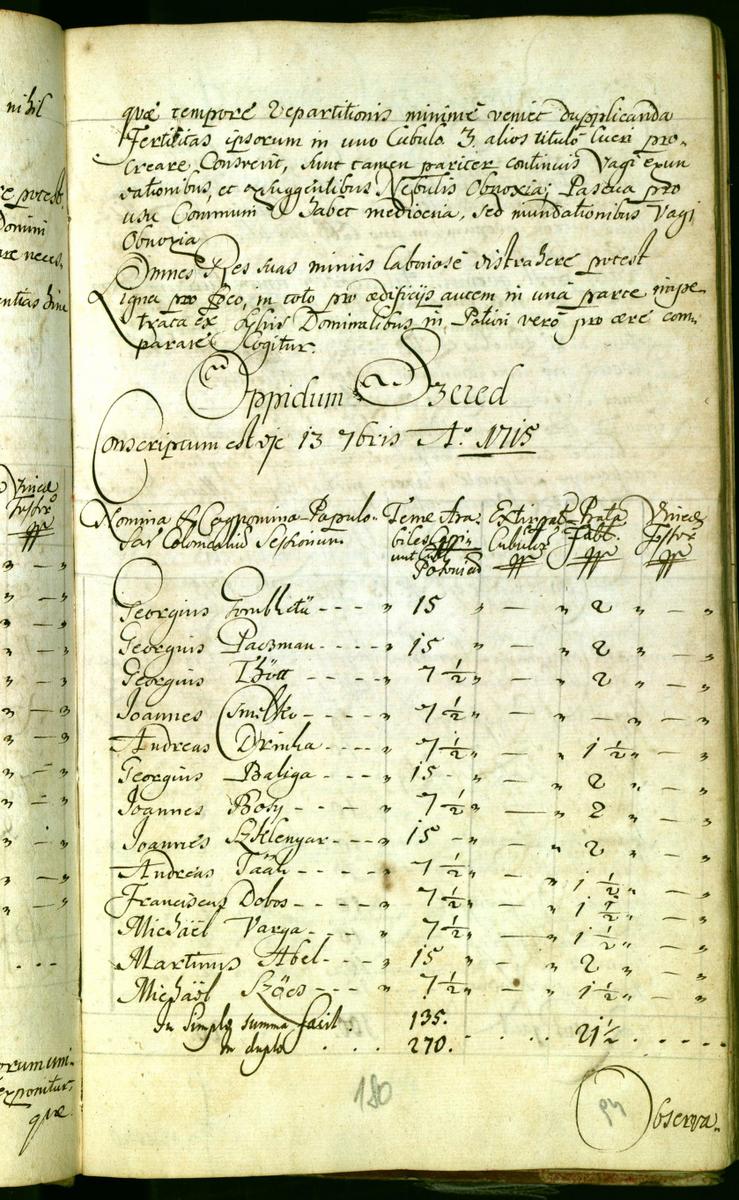 nihil
quæ tempore repartitionis minime veniet dupplicanda
Fertilitas ipsorum in uno Cubulo 3. alios titulo lucri pro-
creare Consvevit, sunt tamen pariter continuis Vagi exun
dationibus, et exsurgentibus Nebulis Obnoxia; Pascua pro
usu Communi habet mediocria, sed inundationibus Vagi
Obnoxia
Omnes Res suas minus laboriose distrahere potest
Ligna pro foco, in toto pro ædificijs autem in una parte impe-
trata ex Sylvis Dominalibus in Potiori vero pro ære com-
parare Cogitur.
Oppidum Szered
Conscriptum est die 13 7bris Ao. 1715
Nomina & Cognomina Populo- Terræ Ara- Extirpat. Prata Vineæ
sar Colonicaliu Sessionum biles Cubulor. Falc. Fossor.
Posonien
Georgius 15 „ — „ 2 „ — „
Georgius Paczman - - - - „ 15 „ — „ 2 „ — „
Georgius Thött - - - - - „ 7 1/2 „ — „ 2 „ — „
Joannes Cmelko - - - - „ 7 1/2 „ — „ — „ — „
Andreas Drinka - - - - „ 7 1/2 „ — „ 1 1/2 „ — „
Georgius Baliga - - - - „ 15 - „ — „ 2 „ — „
Joannes Bosy - - - - „ 7 1/2 „ — „ 2 „ — „
Joannes Szklenyar - - - „ 15 - „ — „ 2 „ — „
Andreas Tääli - - - - „ 7 1/2 „ — „ 1 1/2 „ — „
Franciscus Dobos - - - - „ 7 1/2 „ — „ 1 1/2 „ — „
Michäel Varga - - - - „ 7 1/2 „ — „ 1 1/2 „ — „
Martinus Abel - - - „ 15 „ — „ 2 „ — „
Michäel Szöcs - - - „ 7 1/2 „ — „ 1 1/2 „ — „
In Simplo summa facit. 135. . . . . 21 1/2 . . . . .
in duplo . . . . 270.
180
Observa-